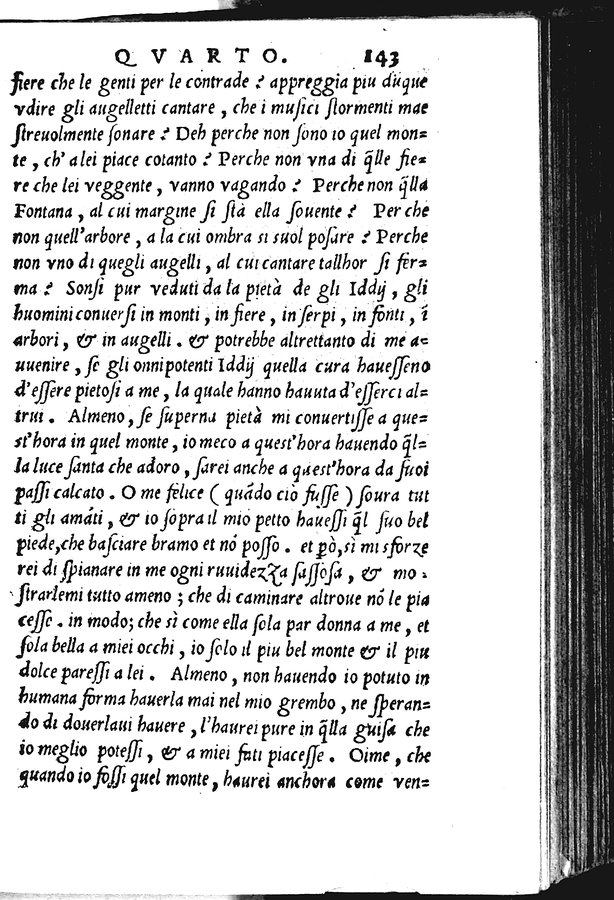 QVARTO. 143
fiere che le genti per le contrade ? appreggia piu dũque
vdire gli augelletti cantare , che i musici stormenti mae
streuolmente sonare ? Deh perche non sono io quel mon=
te , ch' a lei piace cotanto ? Perche non vna di q̃lle fie=
re che lei veggente , vanno vagando ? Perche non q̃lla
Fontana , al cui margine si stà ella souente ? Per che
non quell'arbore , a la cui ombra si suol posare ? Perche
non vno di quegli augelli , al cui cantare tallhor si fer=
ma ? Sonsi pur veduti da la pietà de gli Iddij , gli
huomini conuersi in monti , in fiere , in serpi , in fonti , ĩ
arbori , & in augelli . & potrebbe altrettanto di me a=
uuenire , se gli onnipotenti Iddij quella cura hauesseno
d'essere pietosi a me , la quale hanno hauuta d'esserci al=
trui . Almeno , se superna pietà mi conuertisse a que=
st'hora in quel monte , io meco a quest'hora hauendo q̃l=
la luce santa che adoro , sarei anche a quest'hora da suoi
passi calcato . O me felice ( quãdo ciò fusse ) soura tut
ti gli amãti , & io sopra il mio petto hauessi q̃l suo bel
piede,che basciare bramo et nõ posso . et p̃ò,sì mi sforze
rei di spianare in me ogni ruuidezza sassosa , & mo =
strarlemi tutto ameno ; che di caminare altroue nõ le pia
cesse . in modo; che sì come ella sola par donna a me , et
sola bella a miei occhi , io solo il piu bel monte & il piu
dolce paressi a lei . Almeno , non hauendo io potuto in
humana forma hauerla mai nel mio grembo , ne speran=
do di douerlaui hauere , l'haurei pure in q̃lla guisa che
io meglio potessi , & a miei fati piacesse . Oime , che
quando io fossi quel monte , haurei anchora come ven=